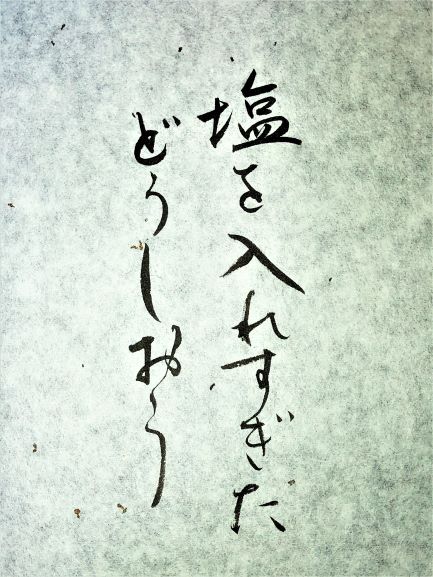 塩を入れすぎた
どうしおう